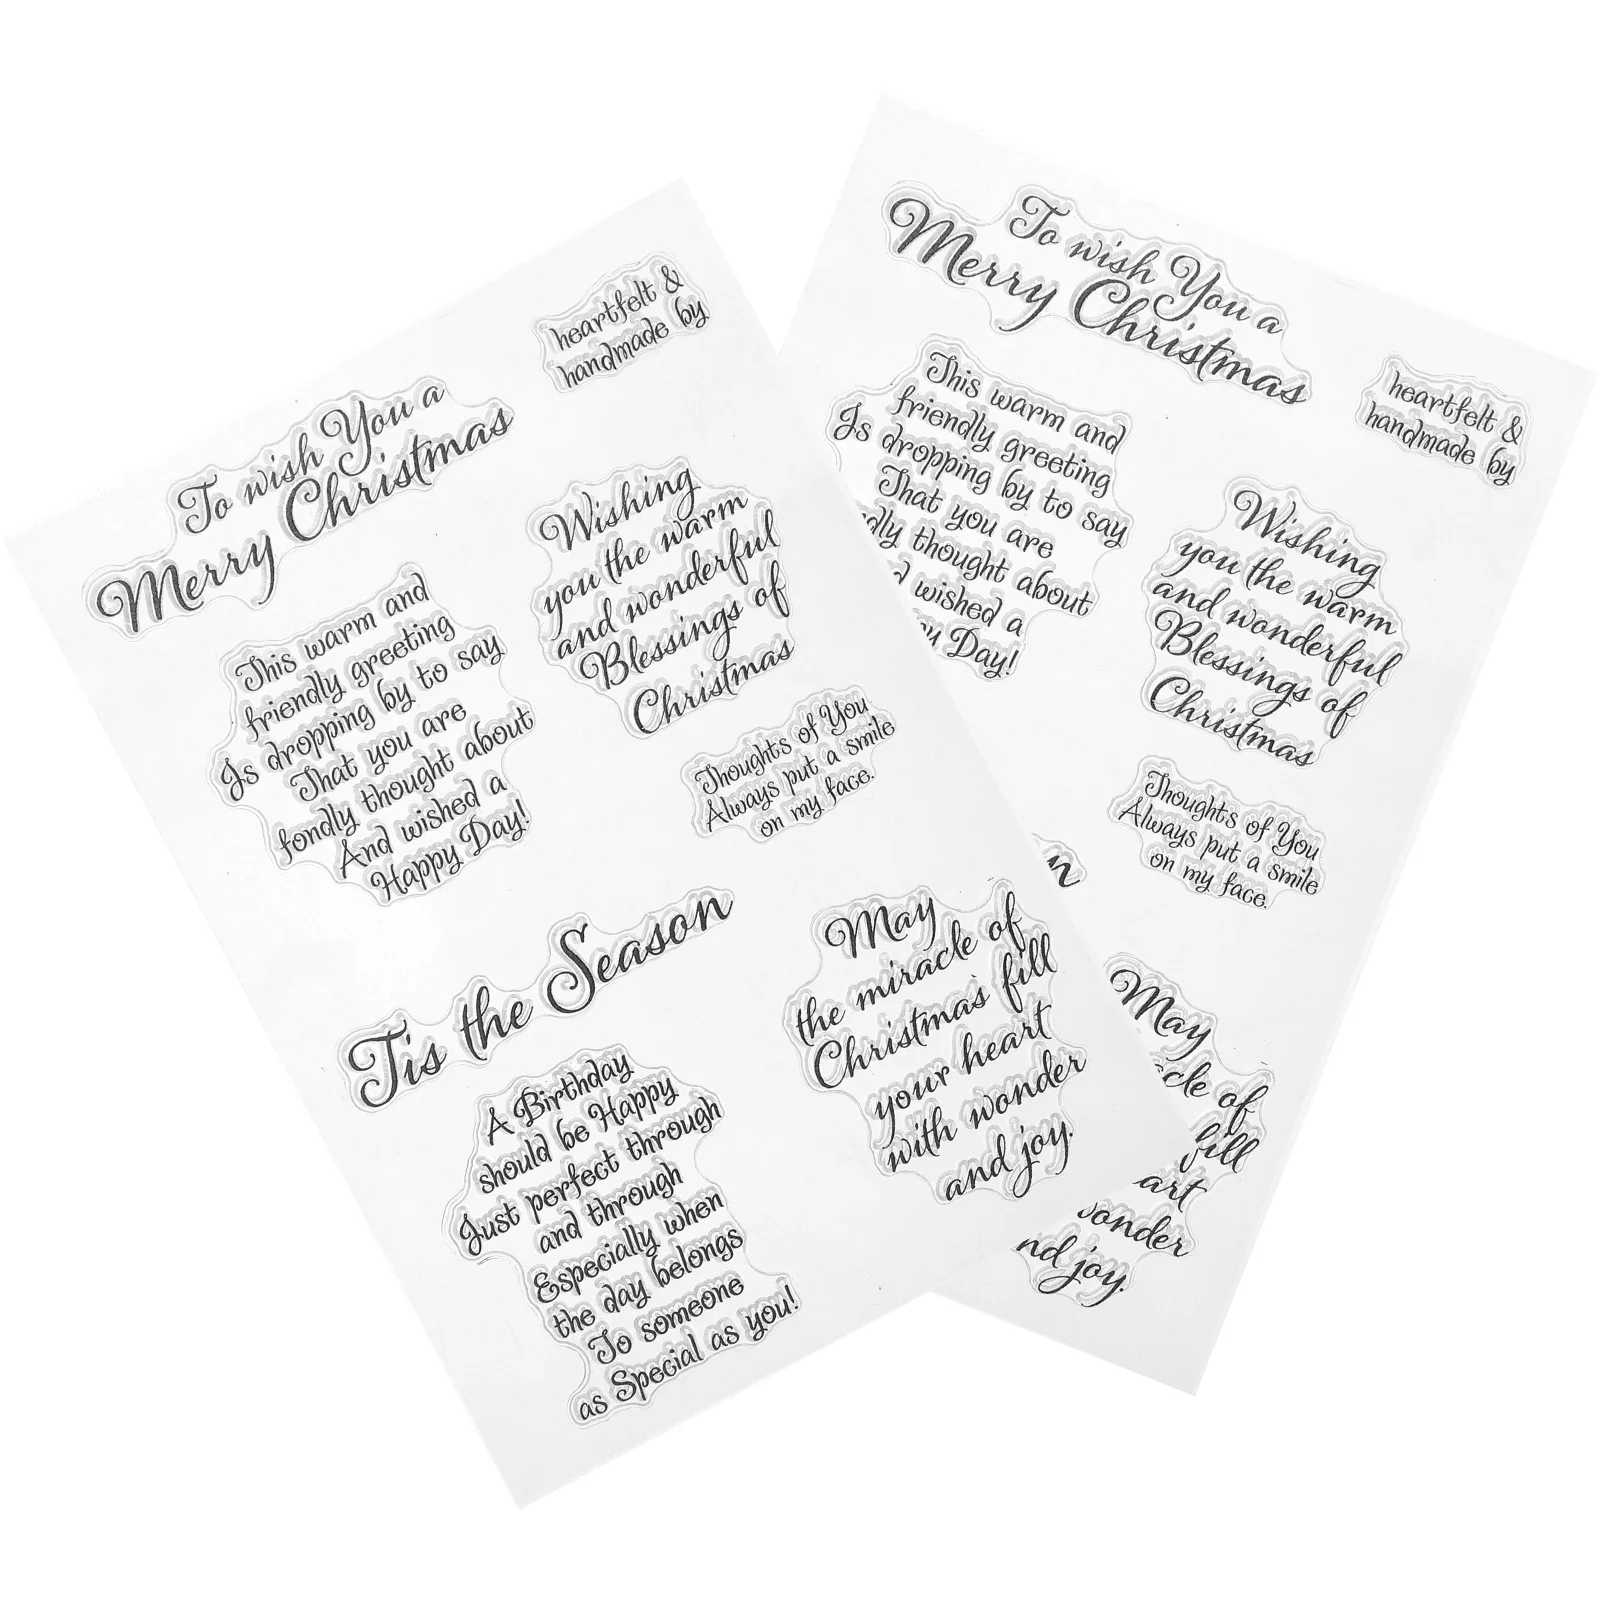 heartfelt &
handmade by
To wish You a
Merry Christmas
Wishing
you the warm
and wonderful
Blessings of
Christmas
This warm and
friendly greeting
Is dropping by to say
That you are
fondly thought about
And wished a
Happy Day!
Thoughts of You
Always put a smile
on my face.
Tis the Season
May
the miracle of
Christmas fill
your heart
with wonder
and joy.
A Birthday
should be Happy
Just perfect through
and through
Especially when
the day belongs
To someone
as Special as you!
To wish You a
Merry Christmas
heartfelt &
handmade by
This warm and
friendly greeting
Is dropping by to say
That you are
dly thought about
d wished a
y Day!
Wishing
you the warm
and wonderful
Blessings of
Christmas
Thoughts of You
Always put a smile
on my face.
n
May
cle of
fill
art
onder
nd joy.